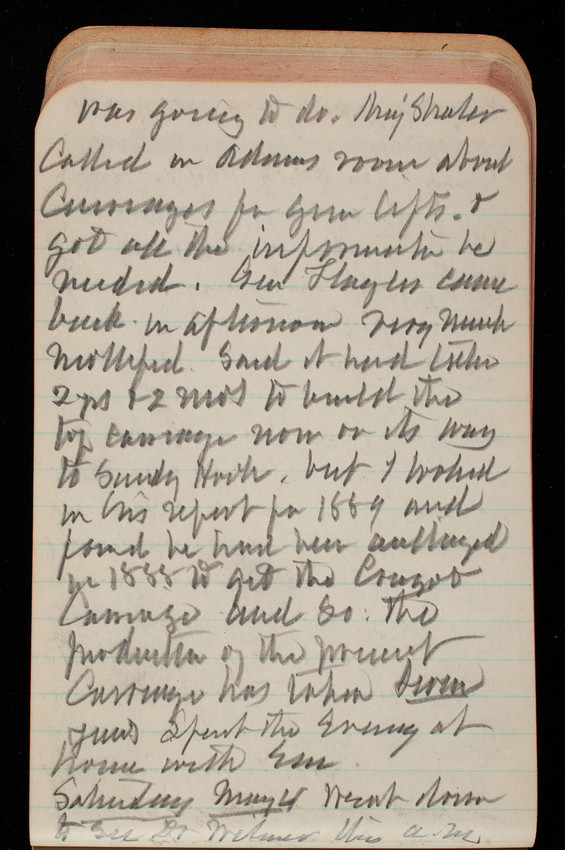 was going to do. Maj Shaler
Called in Adams room about
Carriages for Gun lifts. &
got all the information he
needed. Gen Flagler came
back in afternoon very much
mollified. Said it had taken
2 yrs & 2 mos to build the
top carriage now on its way
to Sandy Hook. but I looked
in his report for 1889 and
found he had been authorized
in 1888 to get the
Carriage and So. the
production of the present
Carriage has taken Seven
years Spent the Evening at
home with Em.
Saturday May 4 Went down
to See Dr Wilmer this a.m.